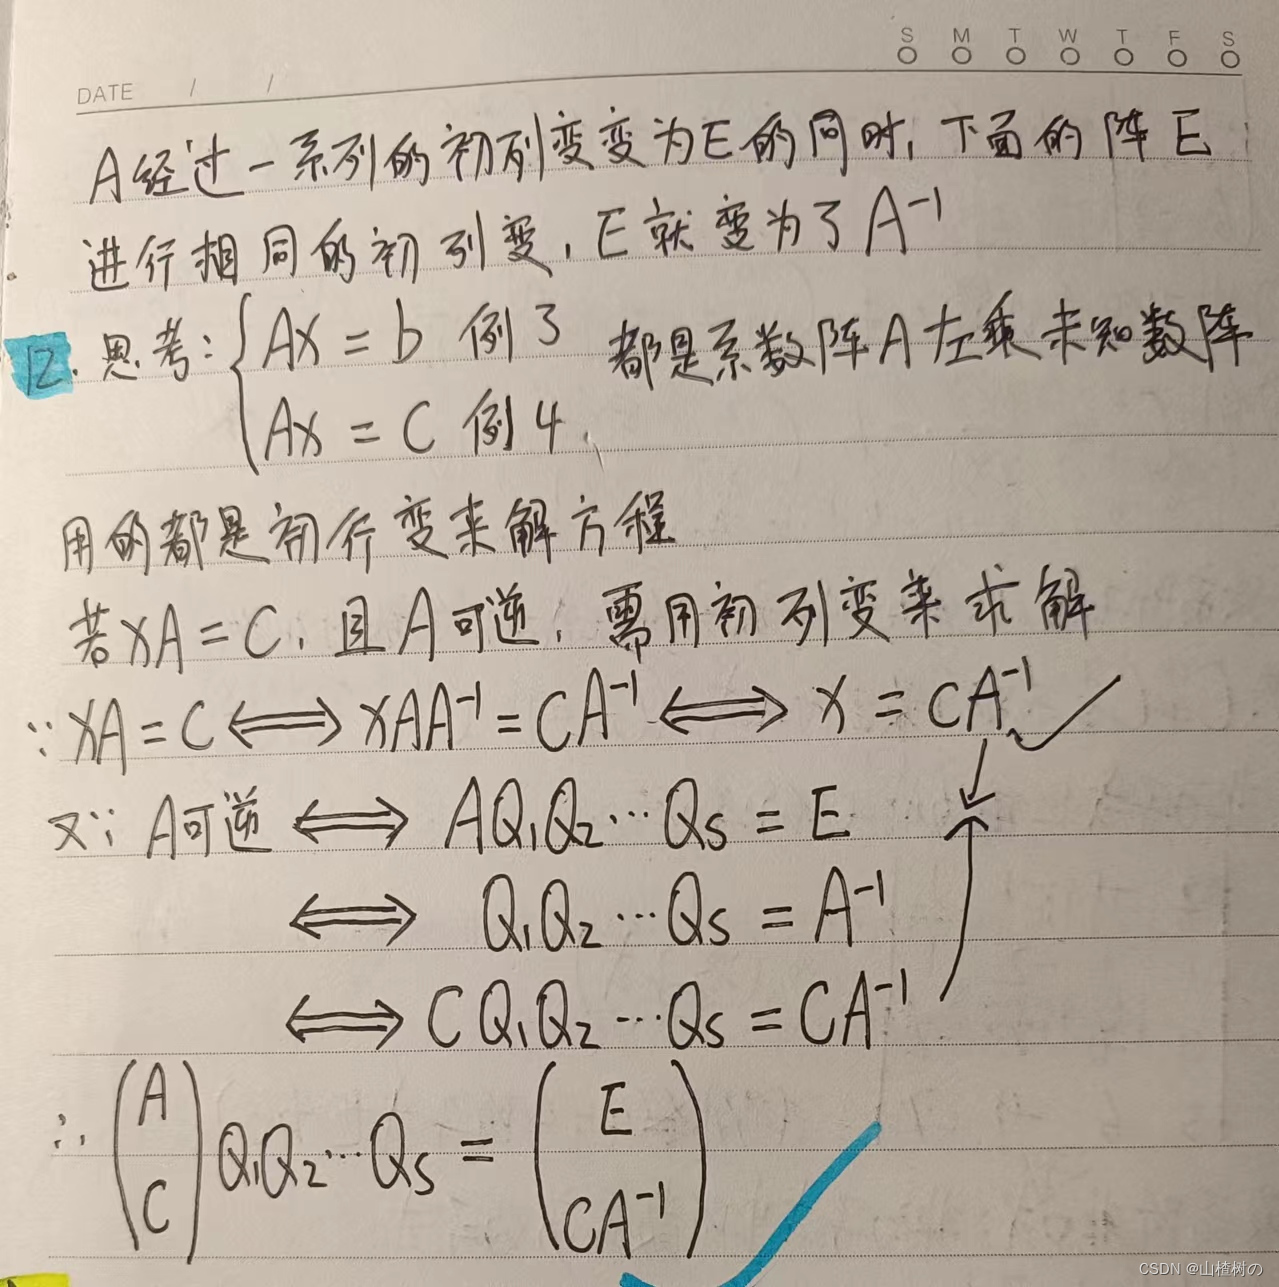 S M T W T F S
DATE / /
A经过一系列的初列变变为E的同时,下面的阵E
进行相同的初列变,E就变为了A⁻¹
12. 思考: { AX = b 例3 都是系数阵A左乘未知数阵
AX = C 例4.
用的都是初行变来解方程
若XA = C, 且A可逆, 需用初列变来求解
∵ XA = C ⟺ XAA⁻¹ = CA⁻¹ ⟺ X = CA⁻¹ ✓
又∵ A可逆 ⟺ AQ₁Q₂···Qs = E
⟺ Q₁Q₂···Qs = A⁻¹
⟺ CQ₁Q₂···Qs = CA⁻¹
∴ (A C) Q₁Q₂···Qs = (E CA⁻¹)
CSDN @山楂树の